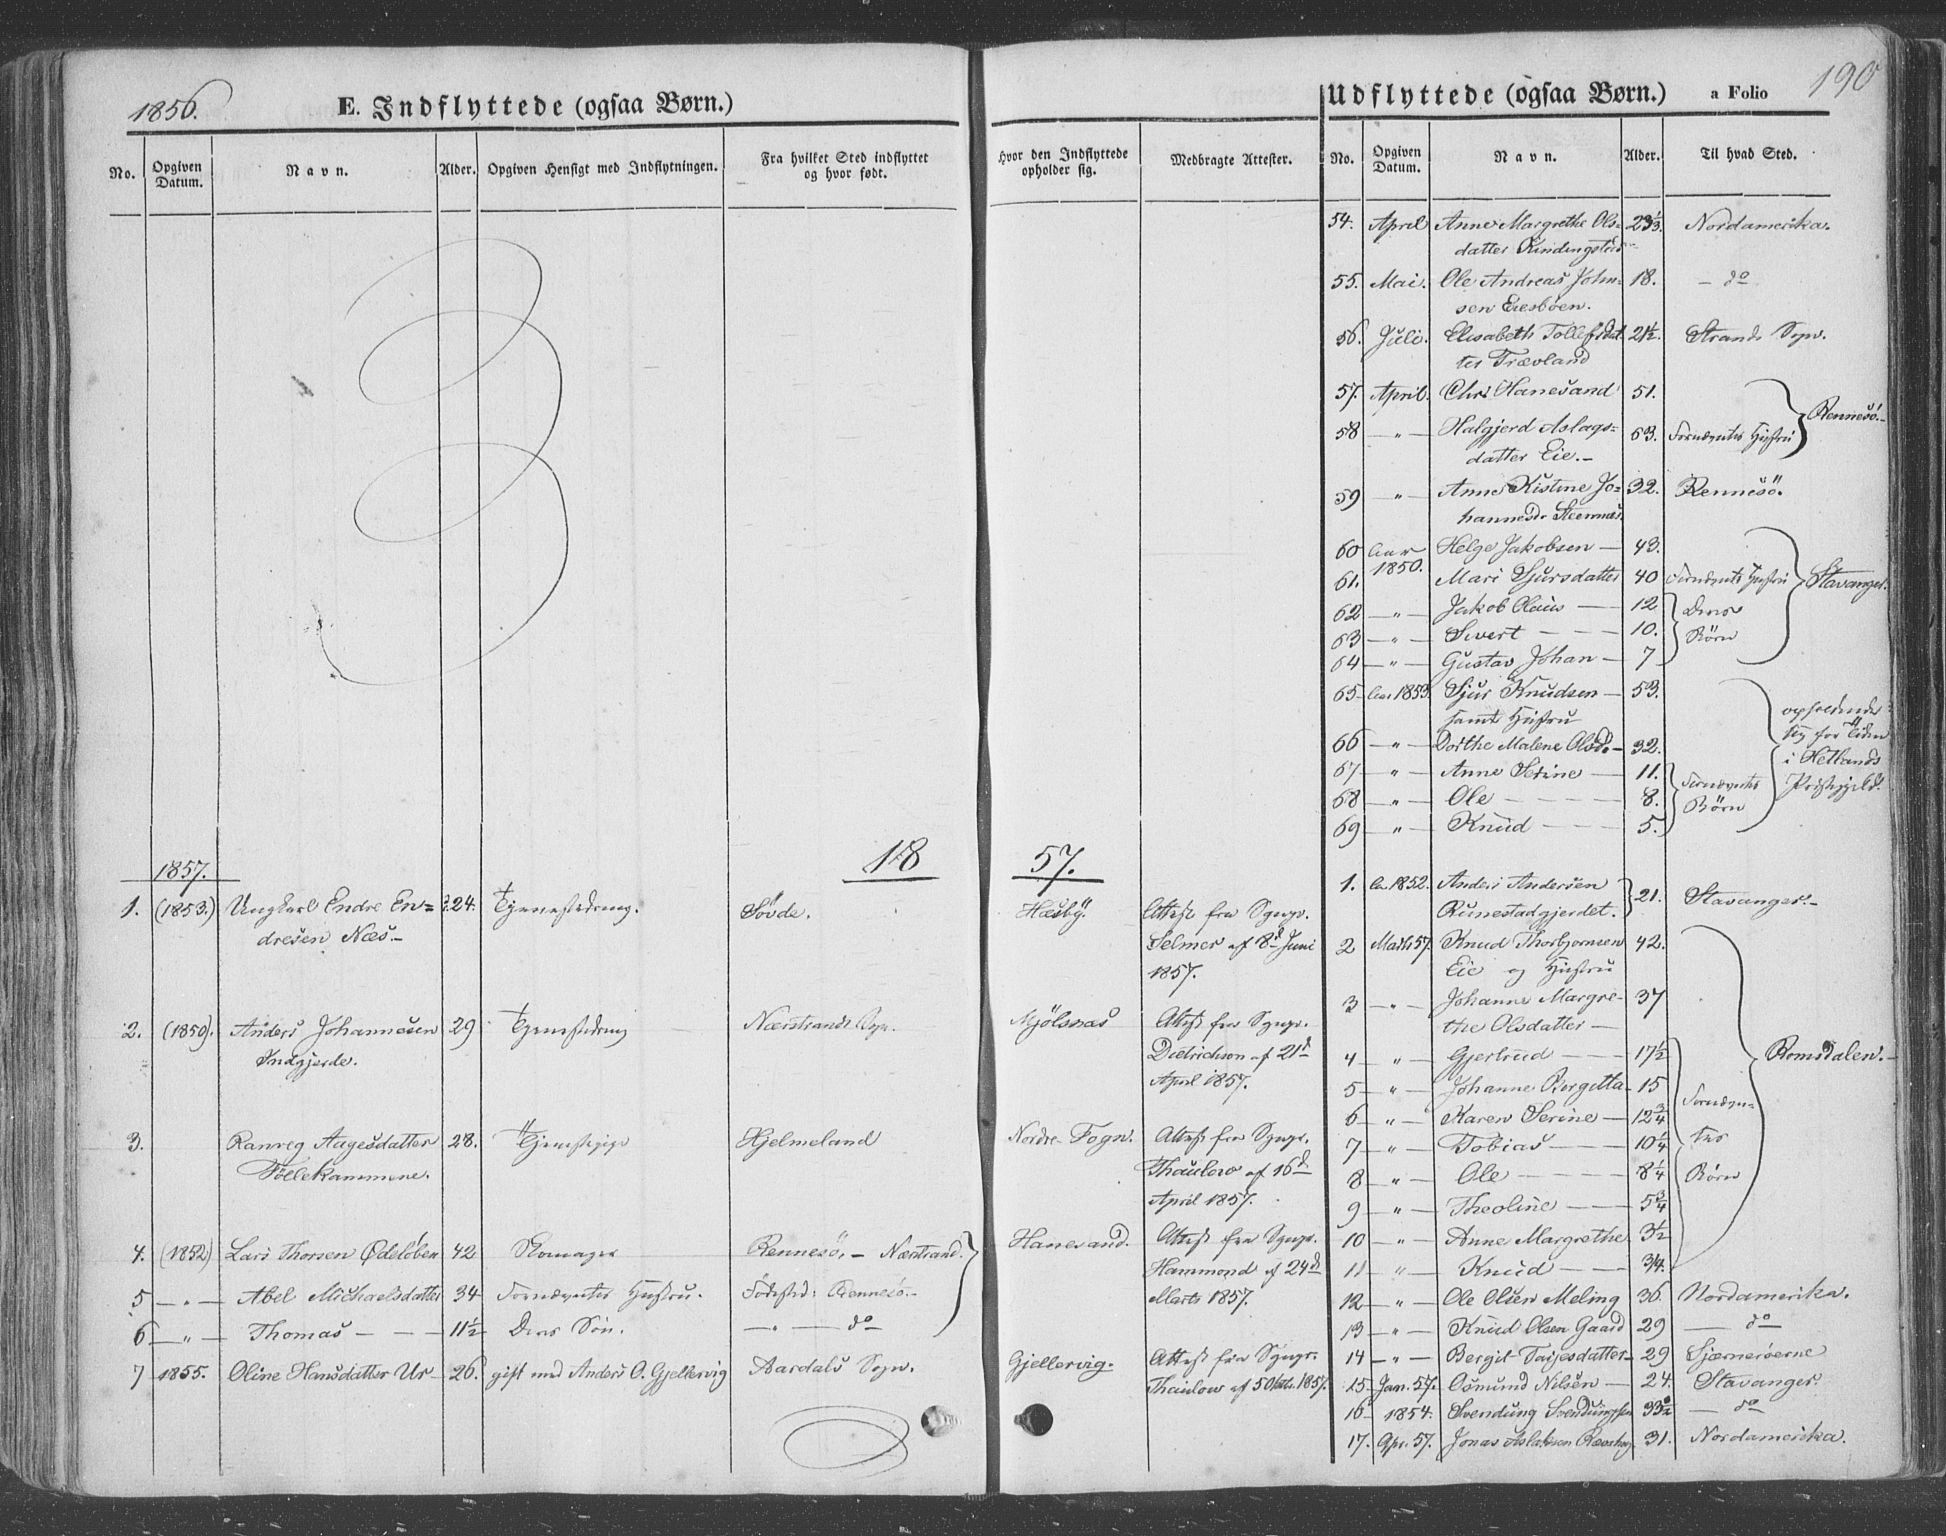 1856.
E. Indflyttede (ogsaa Børn.)
No.
Opgiven Datum.
Navn.
Alder.
Opgiven Hensigt med Indflytningen.
Fra hvilket Sted indflyttet og hvor født.
1857.
18
1. (1853.) Ungkarl Endre En= 24. Tjenestedreng. Søvde.
dresen Næs.
2. (1850). Anders Johannesen 29 Tjenestedreng Nærstrands Sogn.
Indgjerde.
3. Ranveg Aagesdatter 28. Tjenestepige Hjelmeland
Føllekammene.
4. (1852) Lars Thorsen Ødeløben 42 Skomager Rennesö. – Nærstrand.
5 – " – Abel Michaelsdatter 34 Fornævntes Hustru. Fødested: Rennesö.
6 – " – Thomas – 11½ Deres Søn. – " – do
7 1855. Oline Hansdatter Ur 26. gift med Anders O. Gjellervig Aardals Sogn.
190
Udflyttede (ogsaa Børn.)
a Folio
Hvor den Indflyttede opholder sig.
Medbragte Attester.
No.
Opgiven Datum.
Navn.
Alder.
Til hvad Sted.
57.
Hæsby. Attest fra Sgnpr.
Selmer af 8d Juni
1857.
Mjølsnæs Attest fra Sgnpr.
Dietrichson af 21d
April 1857.
Nordre Fogn. Attest fra Sgnpr.
Thaulow af 16d
April 1857.
Hanesand. Attest fra Sgnpr.
Hammond af 24d
Marts 1857.
Gjellervig. Attest fra Sgnpr.
Thaulow af 5 Oktbr. 1857.
54. April Anne Margrethe Ols= 23⅓. Nordamerika.
datter
55. Mai. Ole Andreas John= 18. – do
sen Eiesbøen.
56. Juli. Elisabeth Tollefsdat 21½. Strands Sogn.
ter Trævland
57. April. Chrs Hanesand 51.
Rennesö.
58 – " – Halgjerd Aslags= 63. Fornævntes Hustru
datter Eie.
59 – " – Anne Kistine Jo= 32. Rennesö.
hannesdr Steennæs.
60 Aar 1850. Helge Jakobsen – 43.
61. Mari Sjursdatter 40 Fornævntes Hustru
Stavanger.
62 – " – Jakob Olaus – 12 Deres
63 – " – Sivert – 10. Börn
64 – " – Gustav Johan – 7
65 Aar 1853. Sjur Knudsen – 53.
samt Hustru
opholdende
sig for Tiden
i Hetlands
Prstgjeld.
66 – " – Dorthe Malene Olsd. – 32.
67 – " – Anne Serine – 11. Fornævntes
68 – " – Ole – 8. Börn
69 – " – Knud – 5.
1. Aar 1852. Anders Andersen 21. Stavanger.
Runestadgjerdet.
2 Marts 57. Knud Thorbjørnsen 42.
Eie og Hustru
3 – " – Johanne Margre- 37
the Olsdatter –
4 – " – Gjertrud – 17½
Romsdalen.
5 – " – Johanne Bergitta 15
Fornævn=
6 – " – Karen Serine – 12¾
7 – " – Tobias – 10¼
tes
8 – " – Ole – 8¼
Börn
9 – " – Theoline – 5¾
10 – " – Anne Margrethe 3½
11 – " – Knud – 3/4.
12 – " – Ole Olsen Meling 36. Nordamerika.
13 – " – Knud Olsen Gaard 29 – do
14 – " – Bergit Taijesdatter 29 Sjærnerøerne
15 Jan. 57. Osmund Nilsen – 24. Stavanger.
16 1854. Svendung Svendungsen – do
17. Apr. 57. Jonas Aslaksen 31. Nordamerika.